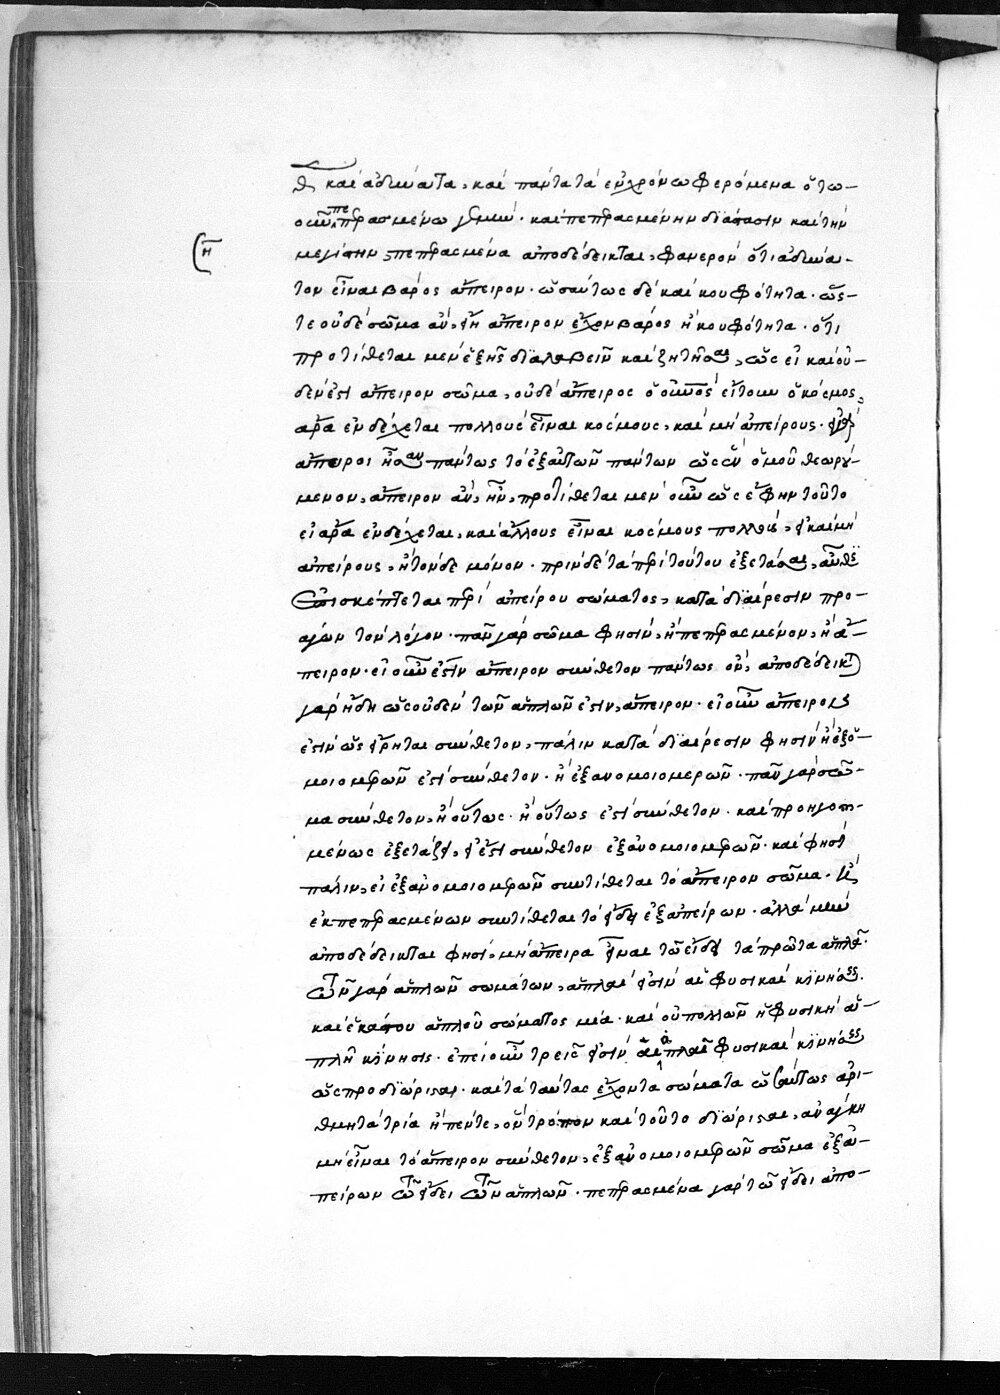 καὶ ἀδύνατα, καὶ πάντα τὰ ἐν χρόνω φερόμενα ὅτω-
οῦν πεπερασμένω γίνεται. καὶ πεπερασμένην διάστασιν καὶ τὴν
(ση
μεγίστην πεπερασμένα ἀποδέδεικται, φανερὸν ὅτι ἀδύνα-
τον εἶναι βάρος ἄπειρον. ὡσαύτως δὲ καὶ κουφότητα. ὥς-
τε οὐδὲ σῶμα ἂν εἴη ἄπειρον ἔχον βάρος ἢ κουφότητα. ὅτι
προτίθεται μὲν ἑξῆς διαλαβεῖν καὶ ζητῆσαι, ὡς εἰ καὶ οὐ-
δέν ἐστι ἄπειρον σῶμα, οὐδὲ ἄπειρος ὁ οὐρανὸς εἴτουν ὁ κόσμος,
ἆρα ἐνδέχεται πολλοὺς εἶναι κόσμους, καὶ μὴ ἀπείρους. εἰ γὰρ
ἄπειροι ἦσαν πάντως τὸ ἐξ αὐτῶν πάντων ὡς ἓν ὁμοῦ θεωρού-
μενον, ἄπειρον ἂν ἦν, προτίθεται μὲν οὖν ὡς ἔφην τοῦτο
εἰ ἆρα ἐνδέχεται, καὶ ἄλλους εἶναι κόσμους πολλοὺς, εἰ καὶ μὴ
ἀπείρους, ἢ τόνδε μόνον. πρὶν δὲ τὰ περὶ τούτου ἐξετάσαι, αὖθις
ἐπισκέπτεται περὶ ἀπείρου σώματος, κατὰ διαίρεσιν προ-
άγων τὸν λόγον. πᾶν γὰρ σῶμα φησὶν, ἢ πεπερασμένον, ἢ ἄ-
πειρον. εἰ οὖν ἐστὶν ἄπειρον σύνθετον πάντως ὂν, ἀποδέδεικται
γὰρ ἤδη ὡς οὐδὲν τῶν ἁπλῶν ἐστὶν ἄπειρον. εἰ οὖν ἄπειρον
ἐστὶν ὡς εἴρηται σύνθετον, πάλιν κατὰ διαίρεσιν φησὶν ἢ ἐξ ὁ-
μοιομερῶν ἐστὶ σύνθετον. ἢ ἐξ ἀνομοιομερῶν. πᾶν γὰρ σῶ-
μα σύνθετον, ἢ οὕτως. ἢ οὕτως ἐστὶ σύνθετον. καὶ προηγου-
μένως ἐξετάζει, εἰ ἔστι σύνθετον ἐξ ἀνομοιομερῶν. καὶ φησὶ
πάλιν, εἰ ἐξ ἀνομοιομερῶν συντίθεται τὸ ἄπειρον σῶμα. ἢ
ἐκ πεπερασμένων συντίθεται τῶ εἴδει ἢ ἐξ ἀπείρων. ἀλλὰ μὴν
ἀποδέδεικται φησὶ, μὴ ἄπειρα εἶναι τῶ εἴδει τὰ πρῶτα ἁπλᾶ.
τῶν γὰρ ἁπλῶν σωμάτων, ἁπλαῖ εἰσὶν αἱ φυσικαὶ κινήσεις.
καὶ ἑκάστου ἁπλοῦ σώματος μία. καὶ οὐ πολλῶν ἡ φυσικὴ ἁ-
πλῆ κίνησις. ἐπεὶ οὖν τρεῖς εἰσὶν αἱ ἁπλαῖ φυσικαὶ κινήσεις
ὡς προδιώρισται. καὶ τὰ ταύτας ἔχοντα σώματα ὡσαύτως ἀρι-
θμητὰ τρία ἢ πέντε, ὃν τρόπον καὶ τοῦτο διώρισται, ἀνάγκη
μὴ εἶναι τὸ ἄπειρον σύνθετον, ἐξ ἀνομοιομερῶν σῶμα ἐξ ἀ-
πείρων τῶ εἴδει τῶν ἁπλῶν. πεπερασμένα γὰρ τῶ εἴδει ἀπο-